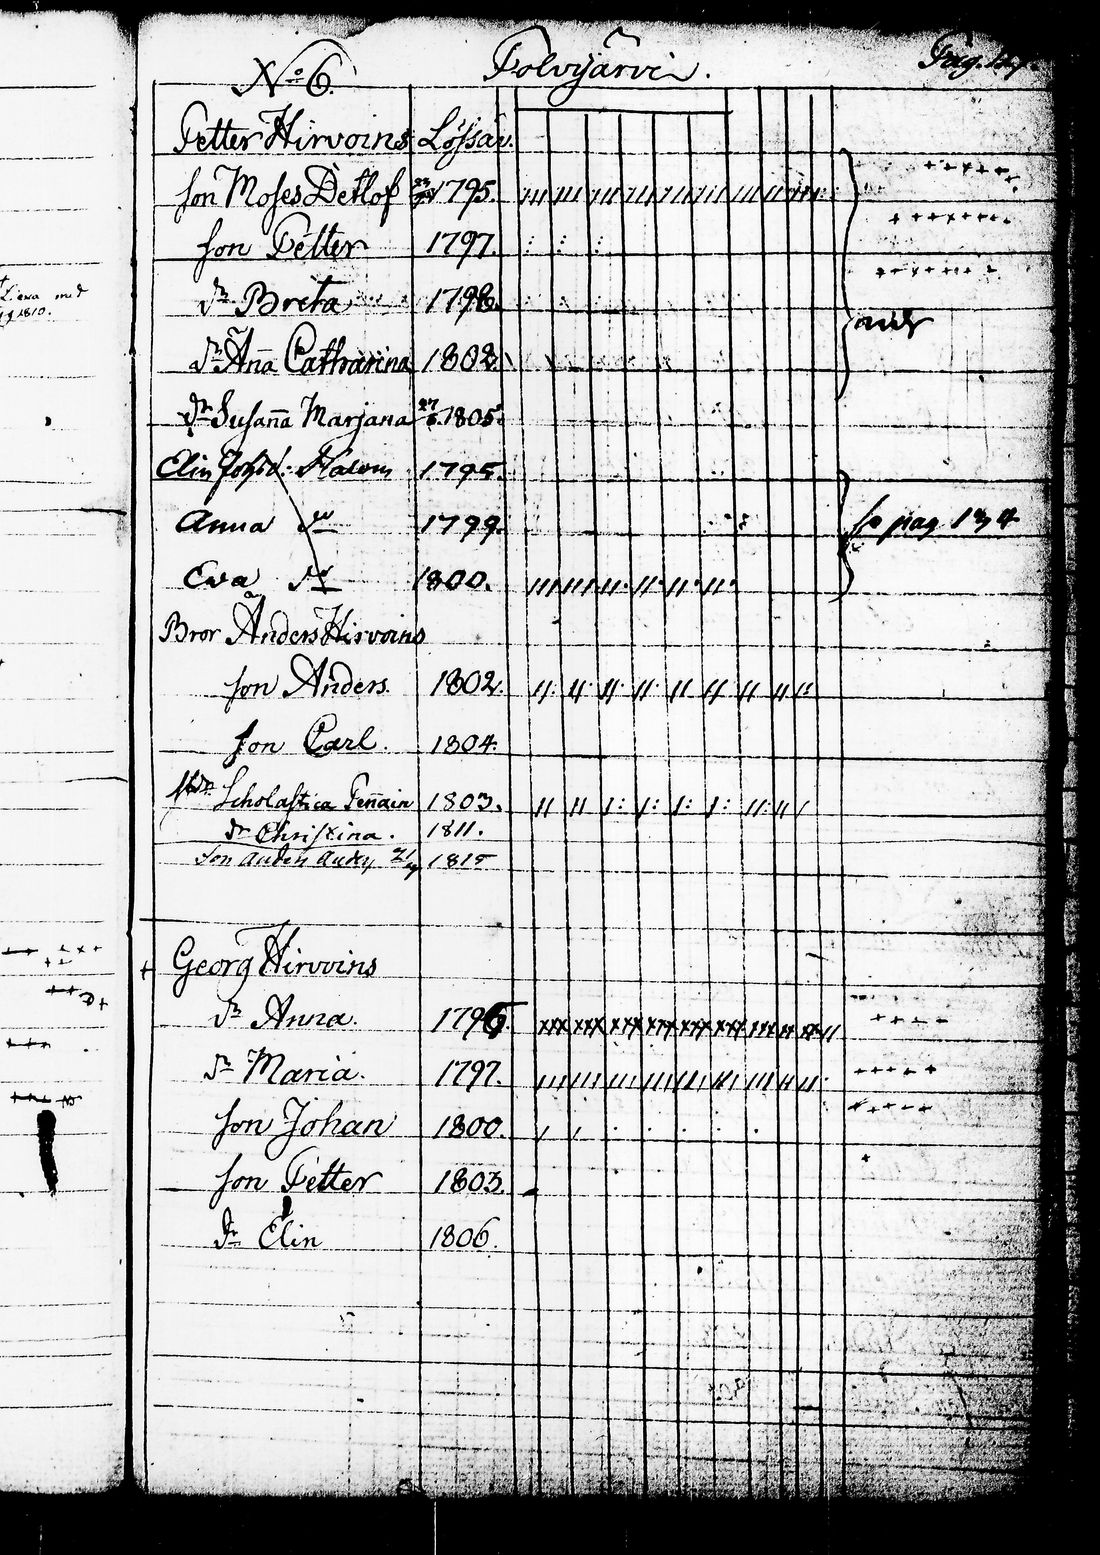 No 6. Polvijärvi. Pag.
Petter Hirvoins Lössäv.
son Moses Detlof 1795.
son Petter 1797.
dr Breta 1798.
dr Aña Catharina 1802.
dr Susaña Marjana 27/5 1805.
Elin 1795.
Anna dr 1799.
se pag 134
Eva dr 1800.
Bror Anders Hirvoins
son Anders. 1802.
son Carl. 1804.
Scholastica Peñain 1803.
dr Christina. 1811.
Son Anders 1815
Georg Hirvoins
dr Anna. 1796.
dr Maria. 1797.
son Johan 1800.
son Petter 1803.
dr Elin 1806.